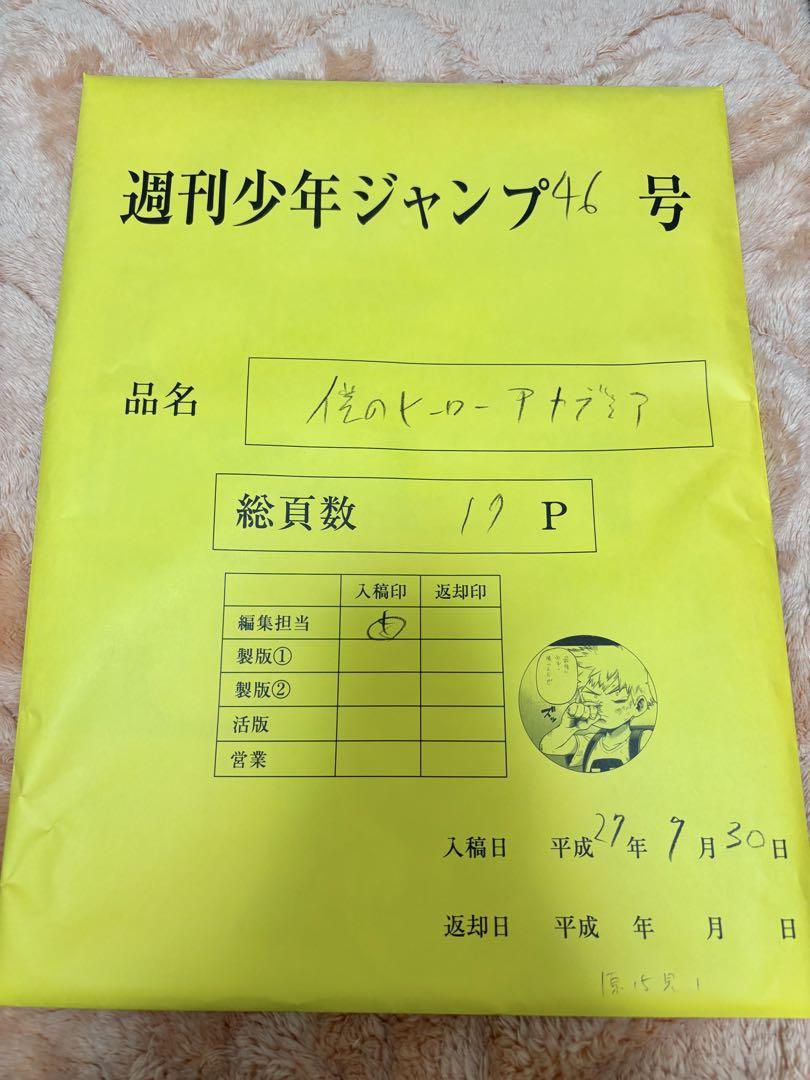 週刊少年ジャンプ46号
品名 僕のヒーローアカデミア
総頁数 17 P
入稿印 返却印
編集担当
製版①
製版②
活版
営業
入稿日 平成27年9月30日
返却日 平成 年 月 日